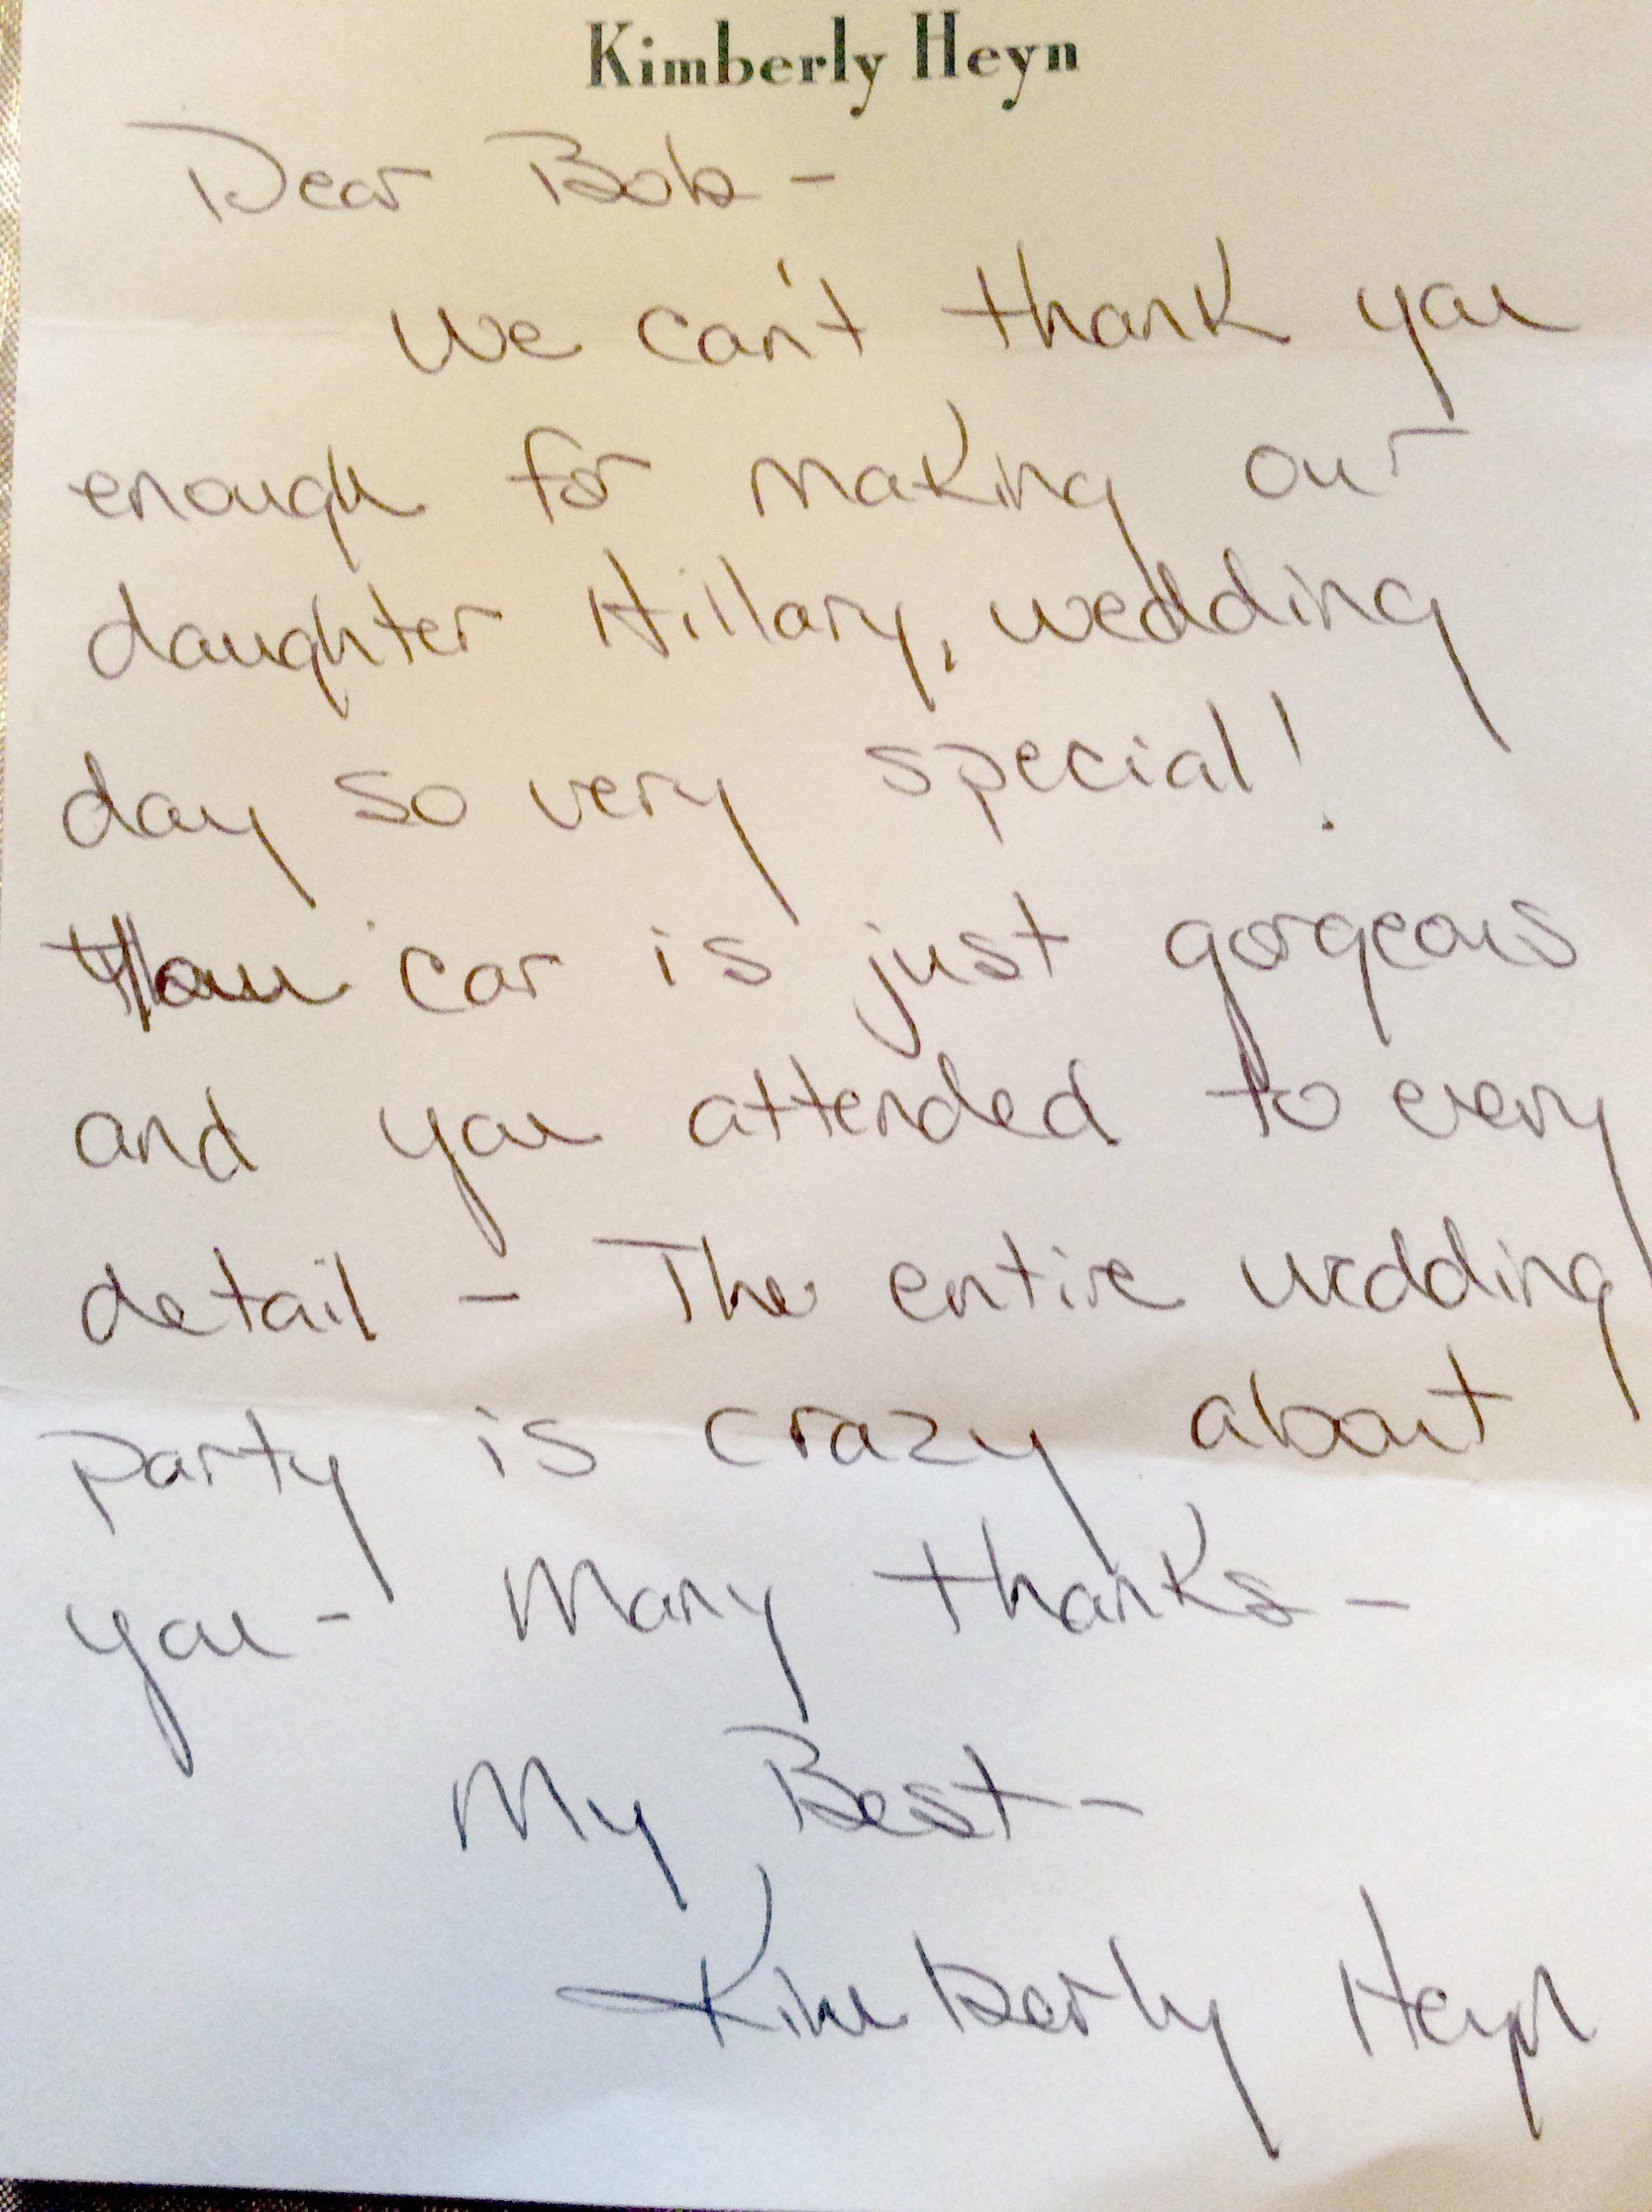 Kimberly Heyn
Dear Bob -
We can't thank you
enough for making our
daughter Hillary, wedding
day so very special!
You car is just gorgeous
and you attended to every
detail - The entire wedding
party is crazy about
you - Many thanks -
My Best -
Kimberly Heyn